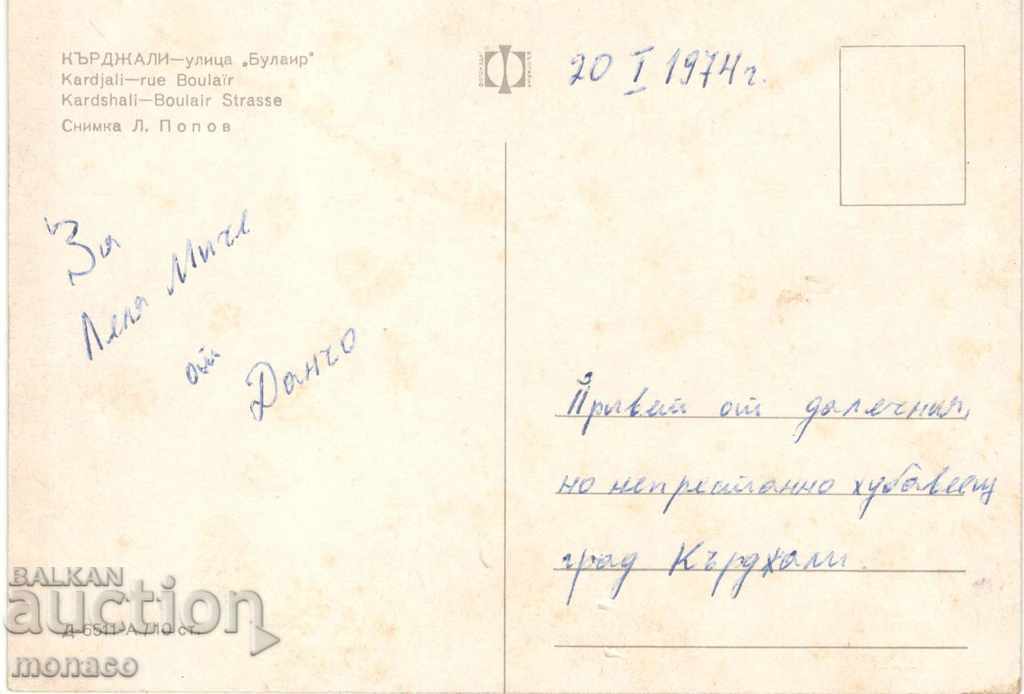 КЪРДЖАЛИ—улица „Булаир"
Kardjali—rue Boulaïr
Kardshali—Boulair Strasse
Снимка Л. Попов
20 I 1974 г.
За
Леля Мичe
от
Данчо
Привет от далечния,
но непрестанно хубавеещ
град Кърджали.
Д-6511-А / 10 ст.
BALKAN
auction
monaco